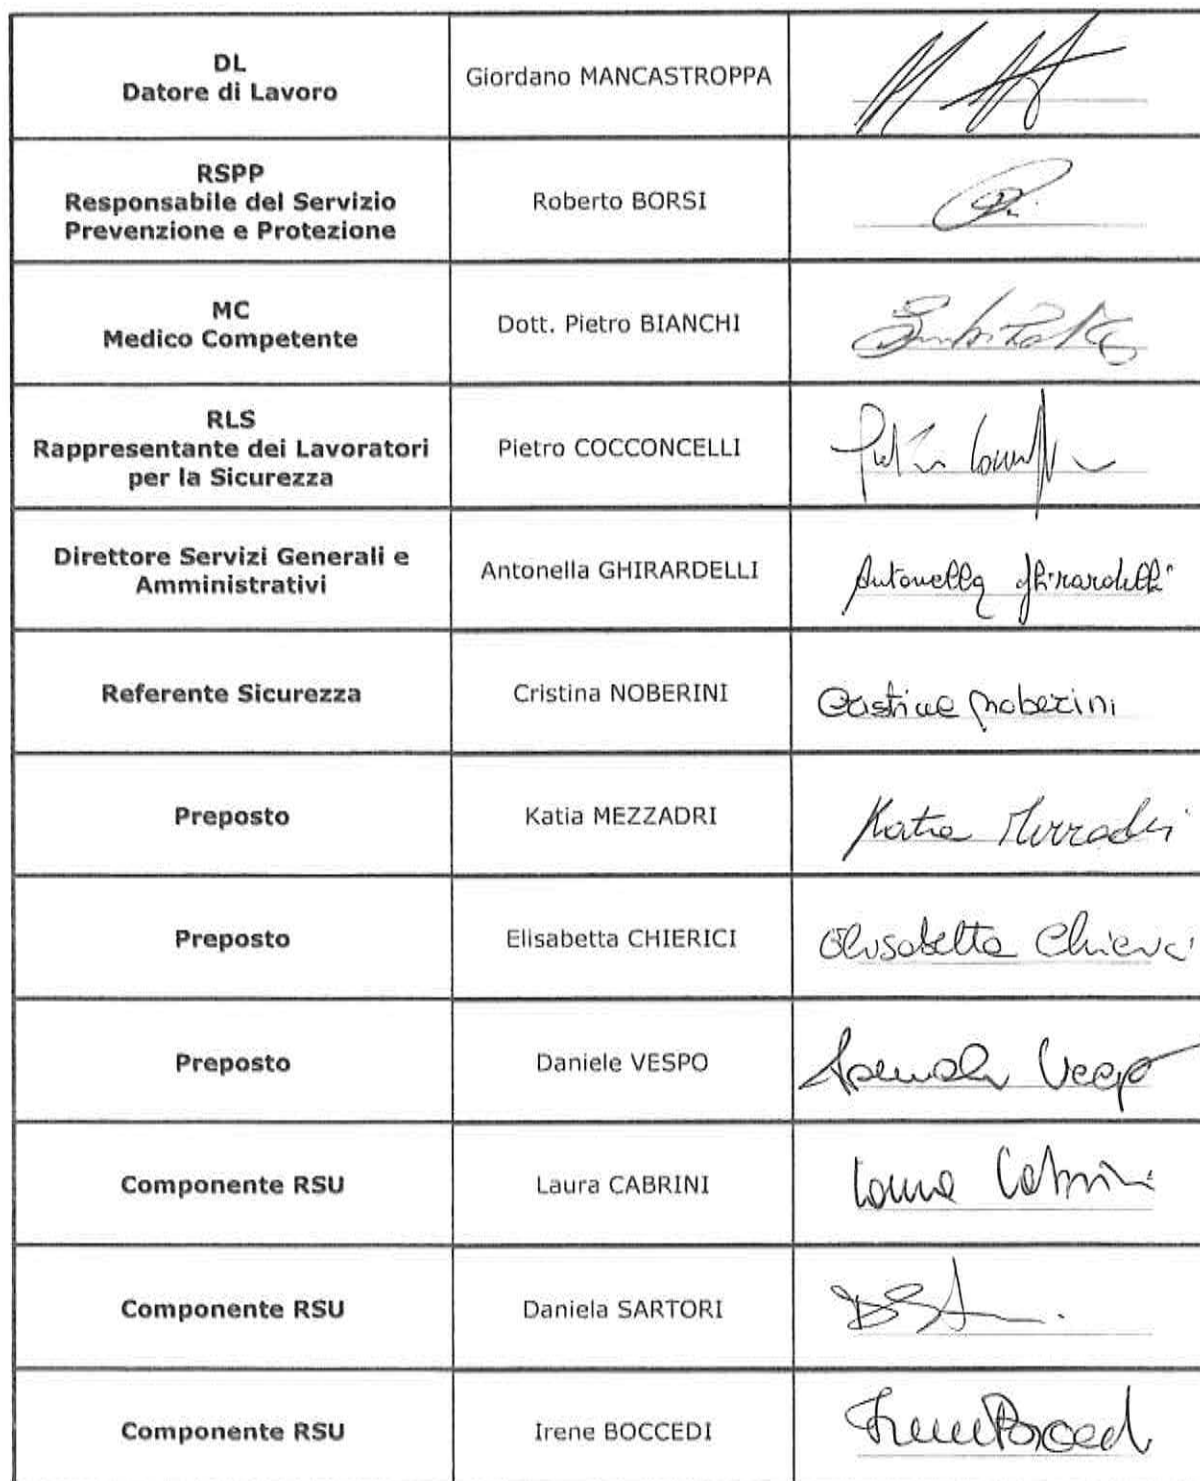 DL
Datore di Lavoro
Giordano MANCASTROPPA
RSPP
Responsabile del Servizio
Prevenzione e Protezione
Roberto BORSI
MC
Medico Competente
Dott. Pietro BIANCHI
RLS
Rappresentante dei Lavoratori
per la Sicurezza
Pietro COCCONCELLI
Direttore Servizi Generali e
Amministrativi
Antonella GHIRARDELLI
Antonella Ghirardelli
Referente Sicurezza
Cristina NOBERINI
Cristina Noberini
Preposto
Katia MEZZADRI
Katia Mezzadri
Preposto
Elisabetta CHIERICI
Elisabetta Chierici
Preposto
Daniele VESPO
Daniele Vespo
Componente RSU
Laura CABRINI
Laura Cabrini
Componente RSU
Daniela SARTORI
Componente RSU
Irene BOCCEDI
Irene Boccedi